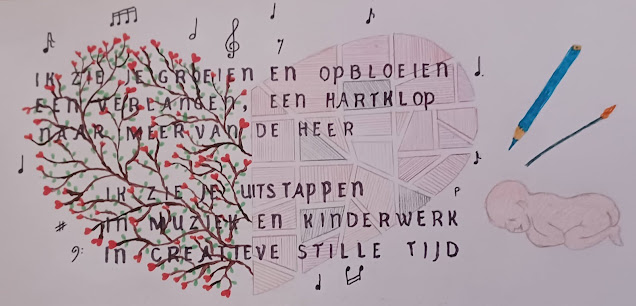 IK ZIE JE GROEIEN EN OPBLOEIEN
EEN VERLANGEN, EEN HARTKLOP
NAAR MEER VAN DE HEER
IK ZIE JE UITSTAPPEN
IN MUZIEK EN KINDERWERK
IN CREATIEVE STILLE TIJD